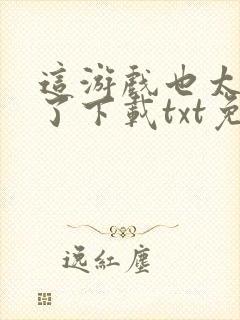 這游戲也太
了下載txt免
逸紅塵